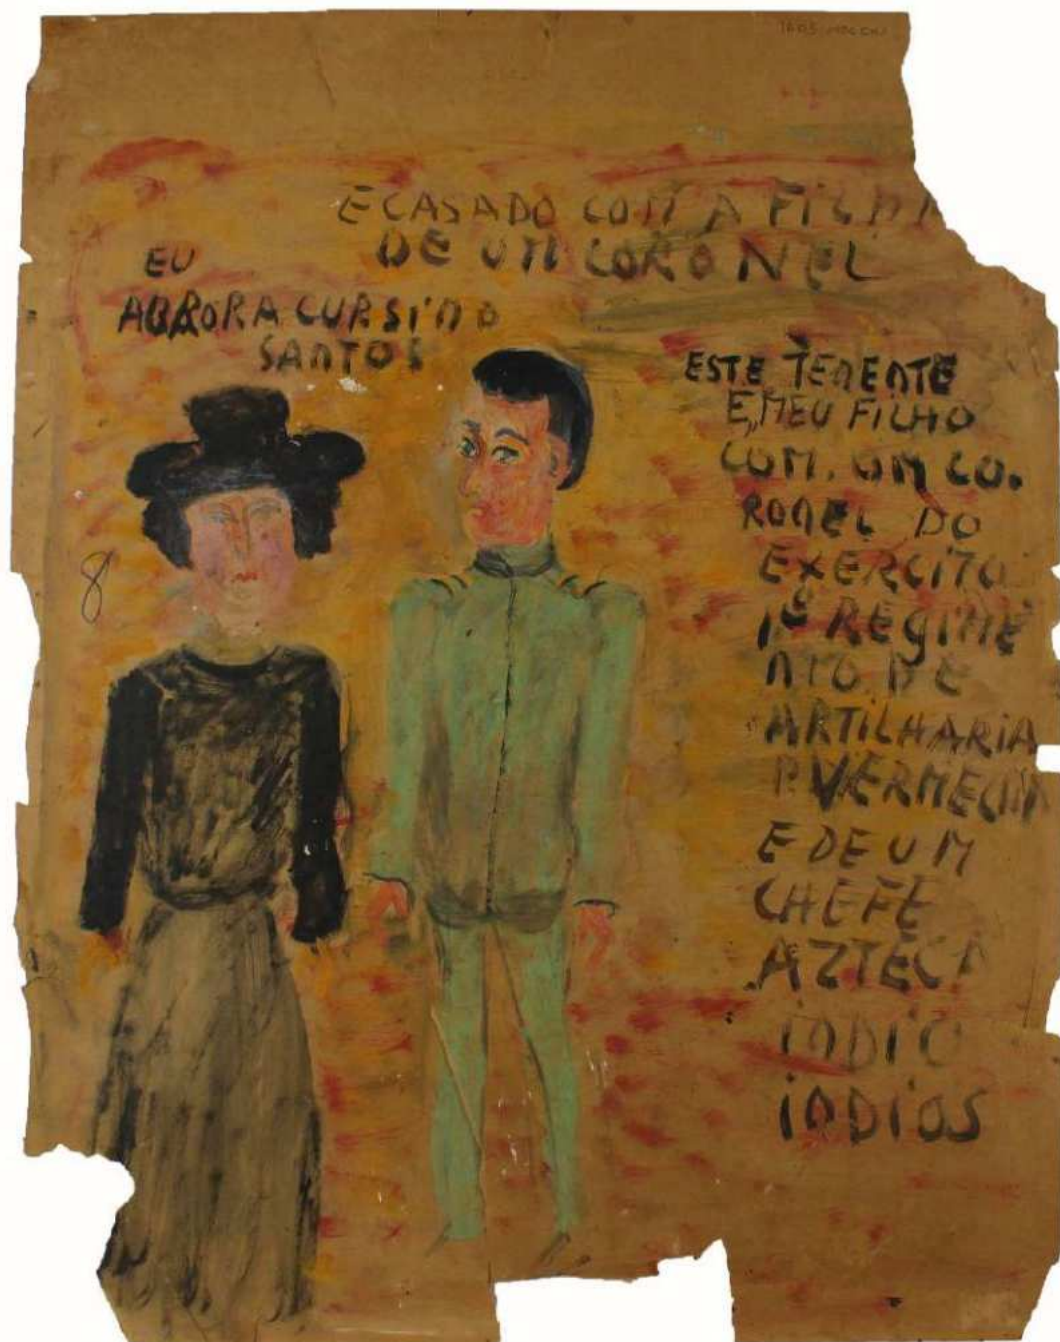 E CASADO COM A FILHA
DE UM CORONEL
EU
AURORA CURSINO
SANTOS
ESTE TENENTE
E, MEU FILHO
COM. UM CO.
RONEL DO
EXERCITO
1º REGIME
NTO DE
ARTILHARIA
P. VERMELHA
E DE UM
CHEFE
AZTECA
INDIO
INDIOS
8